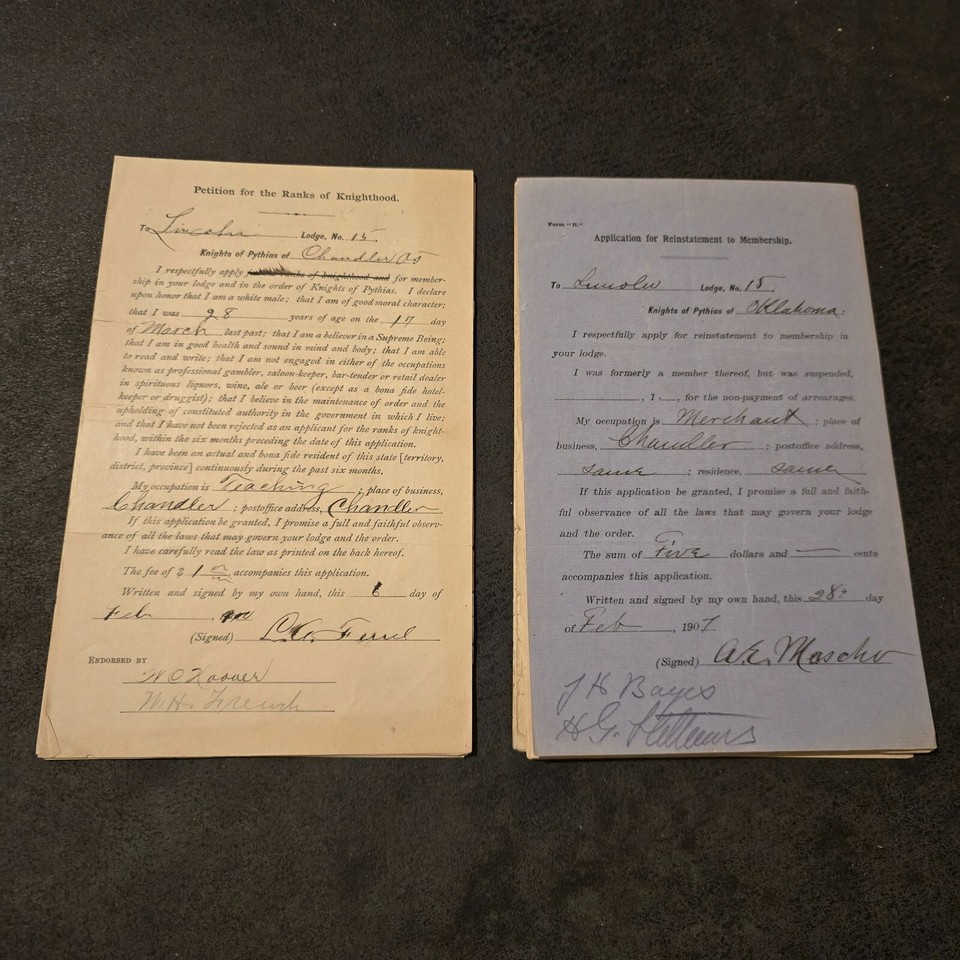 Petition for the Ranks of Knighthood.
To Lincoln Lodge, No. 15.
Knights of Pythias of Chandler
I respectfully apply for the ranks of knighthood and for member-
ship in your lodge and in the order of Knights of Pythias. I declare
upon honor that I am a white male; that I am of good moral character;
that I was 28 years of age on the 17 day
of March last past; that I am a believer in a Supreme Being;
that I am in good health and sound in mind and body; that I am able
to read and write; that I am not engaged in either of the occupations
known as professional gambler, saloon-keeper, bar-tender or retail dealer
in spirituous liquors, wine, ale or beer (except as a bona fide hotel-
keeper or druggist); that I believe in the maintenance of order and the
upholding of constituted authority in the government in which I live;
and that I have not been rejected as an applicant for the ranks of knight-
hood, within the six months preceding the date of this application.
I have been an actual and bona fide resident of this state [territory,
district, province] continuously during the past six months.
My occupation is Teaching; place of business,
Chandler; postoffice address, Chandler
If this application be granted, I promise a full and faithful observ-
ance of all the laws that may govern your lodge and the order.
I have carefully read the law as printed on the back hereof.
The fee of $ 1 accompanies this application.
Written and signed by my own hand, this 6 day of
Feb
(Signed)
ENDORSED BY
W C Hoover
W. H. French
Form "B."
Application for Reinstatement to Membership.
To Lincoln Lodge, No. 15.
Knights of Pythias of Oklahoma:
I respectfully apply for reinstatement to membership in
your lodge.
I was formerly a member thereof, but was suspended,
, 1 , for the non-payment of arrearages.
My occupation is Merchant; place of
business, Chandler; postoffice address,
same; residence, same
If this application be granted, I promise a full and faith-
ful observance of all the laws that may govern your lodge
and the order.
The sum of Five dollars and — cents
accompanies this application.
Written and signed by my own hand, this 28 day
of Feb, 1907
(Signed) A. E. Mascho
J H Bayes
H G.